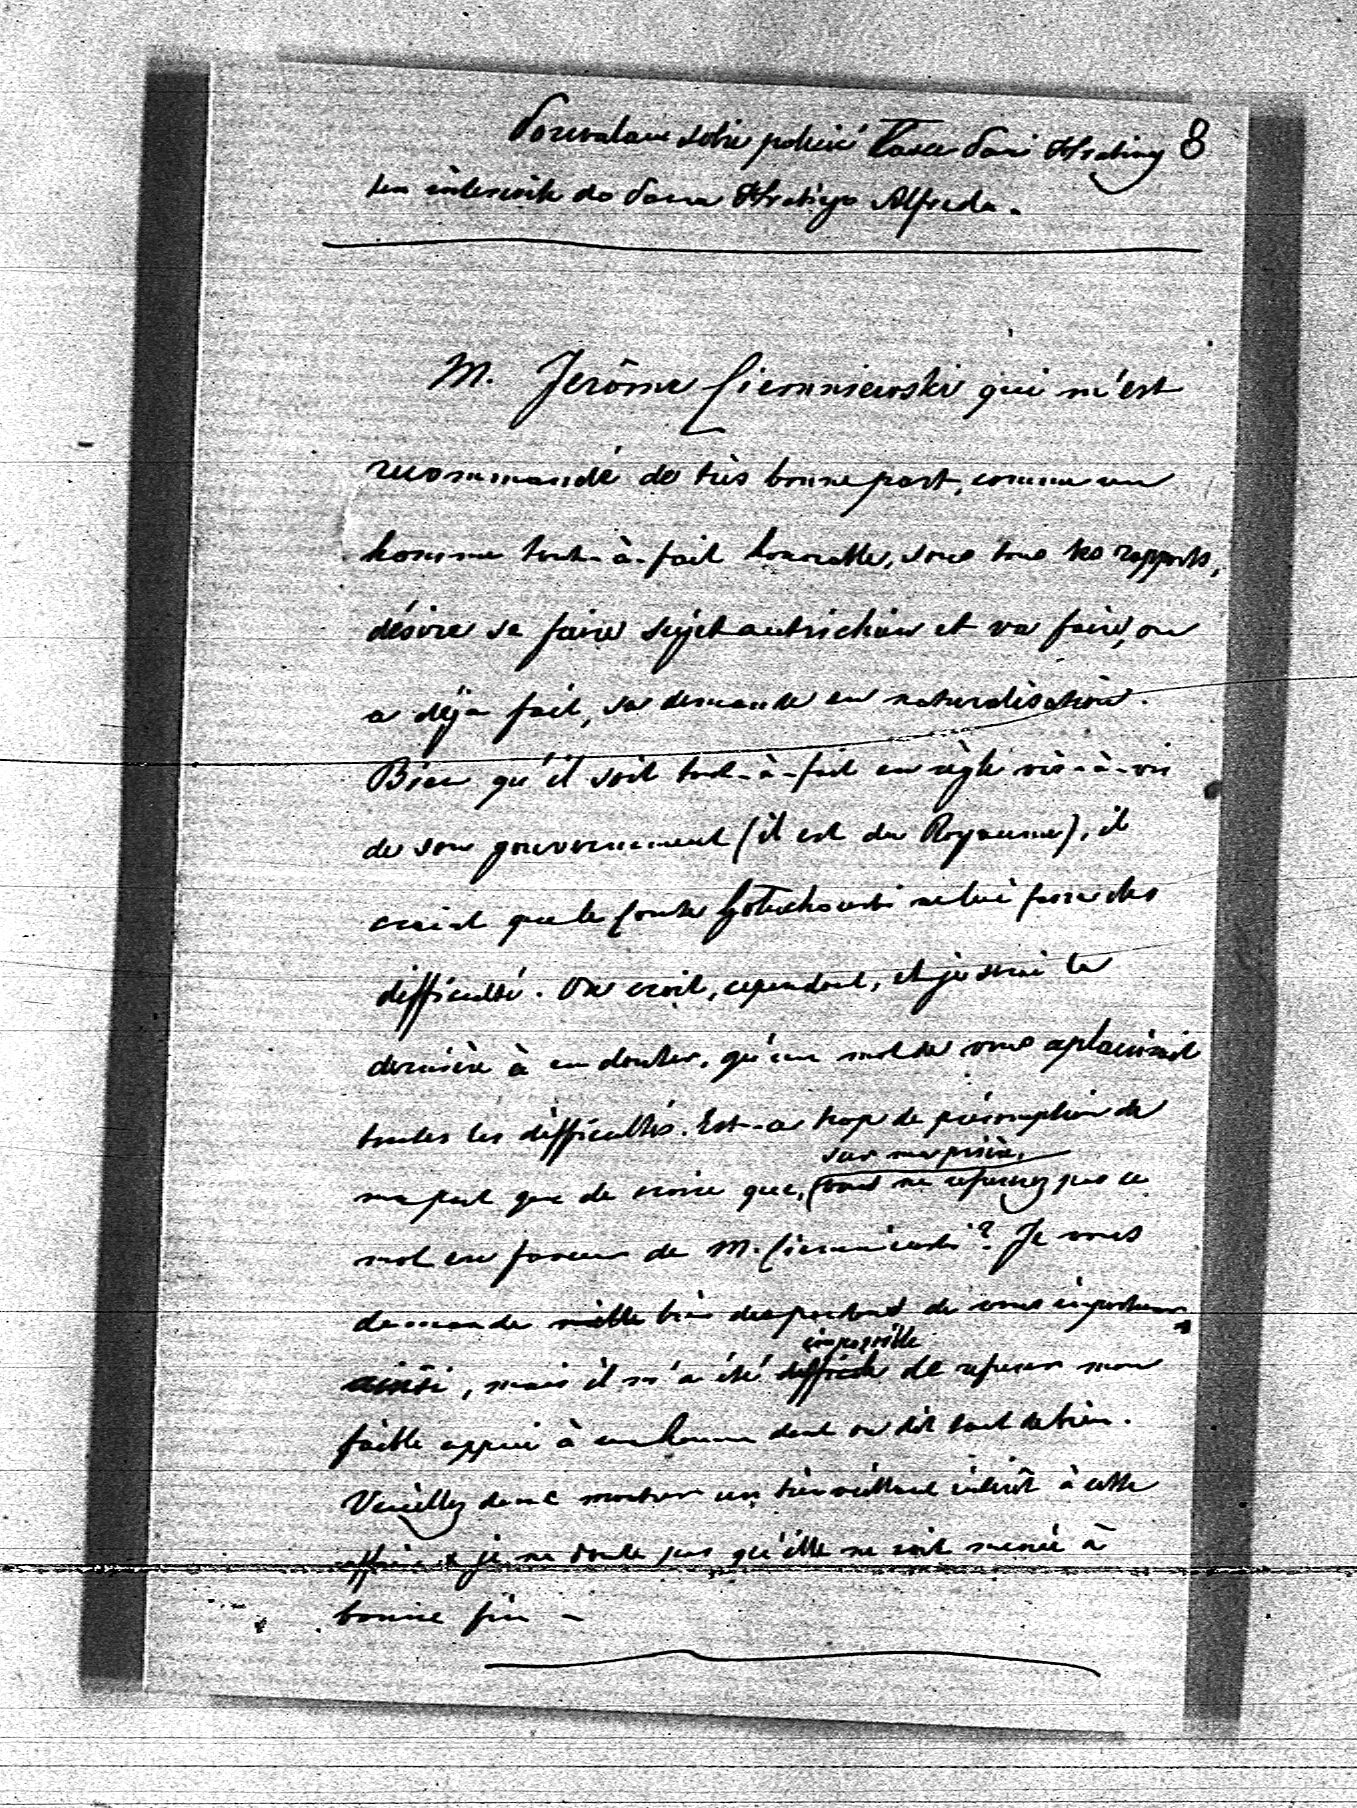 Pozwalam sobie polecić Łasce Pani Hrabiny 8
ten interesik do Pana Hrabiego Alfreda.
M. Jerôme Ciemniewski qui m'est
recommandé de très bonne part, comme un
homme tout-à-fait honorable, sous tous les rapports,
désire se faire sujet autrichien et va faire, ou
a déja fait, sa demande en naturalisation.
Bien qu'il soit tout-à-fait en règle vis-à-vis
de son gouvernement (il est du Royaume), il
craint que le Comte Gołuchowski ne lui fasse des
difficulté. On croit, cependant, et je serai la
dernière à en douter, qu'un mot de vous aplanirait
toutes les difficultés. Est-ce trop de présomption de
sur ma prière,
ma part que de croire que, vous ne refuserez pas ce
mot en faveur de M. Ciemniewski? Je vous
demande mille bien des pardons de vous importuner
impossible
ainsi, mais il m'a été difficile de refuser mon
faible appui à un homme dont on dit tant de bien.
Veuillez donc montrer un bienveillant intérêt à cette
affaire & je ne doute pas qu'elle ne soit menée à
bonne fin –